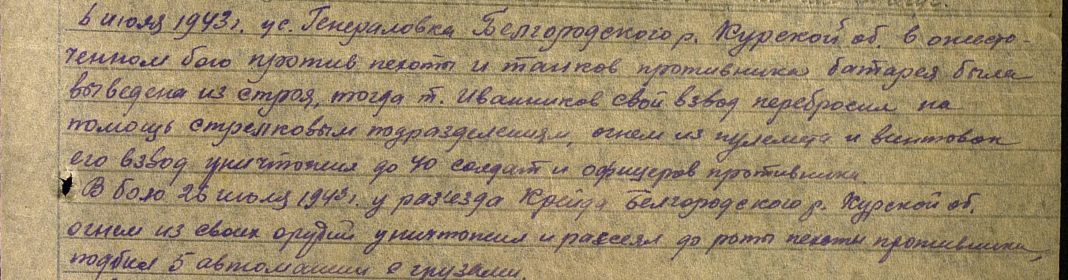 6 июля 1943 г. у с. Генераловка Белгородского р. Курской об. в ожесто-
ченном бою против пехоты и танков противника батарея была
выведена из строя, тогда т. Иванников свой взвод перебросил на
помощь стрелковым подразделениям, огнем из пулемета и винтовок
его взвод уничтожил до 40 солдат и офицеров противника
В бою 26 июля 1943 г. у разъезда Крейда Белгородского р. Курской об.
огнем из своих орудий уничтожил и рассеял до роты пехоты противника,
подбил 5 автомашин с грузами.